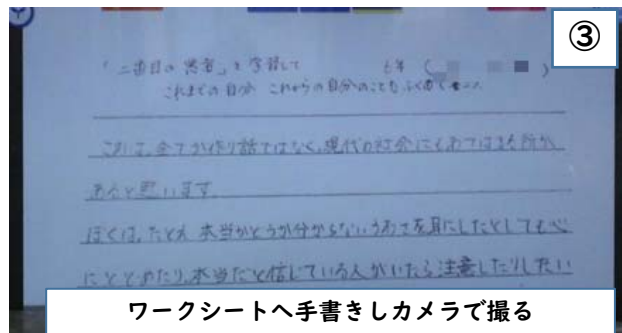 ③
「二番目の悪者」を学習して 6年( )
これまでの自分 これからの自分のこともふくめて
これは、全てが作り話ではなく、現代の社会にもあてはまる所が
あると思います。
ぼくは、たとえ本当かどうか分からないうわさを耳にしたとしても心
にとどめたり、本当だと信じている人がいたら注意したりしたい
ワークシートへ手書きしカメラで撮る